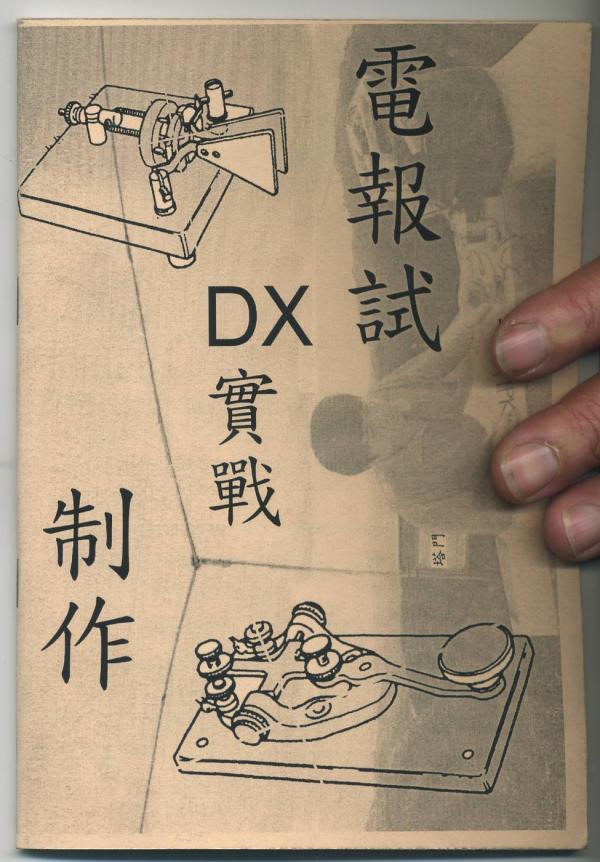 電報試
DX
實戰
制作
塔門